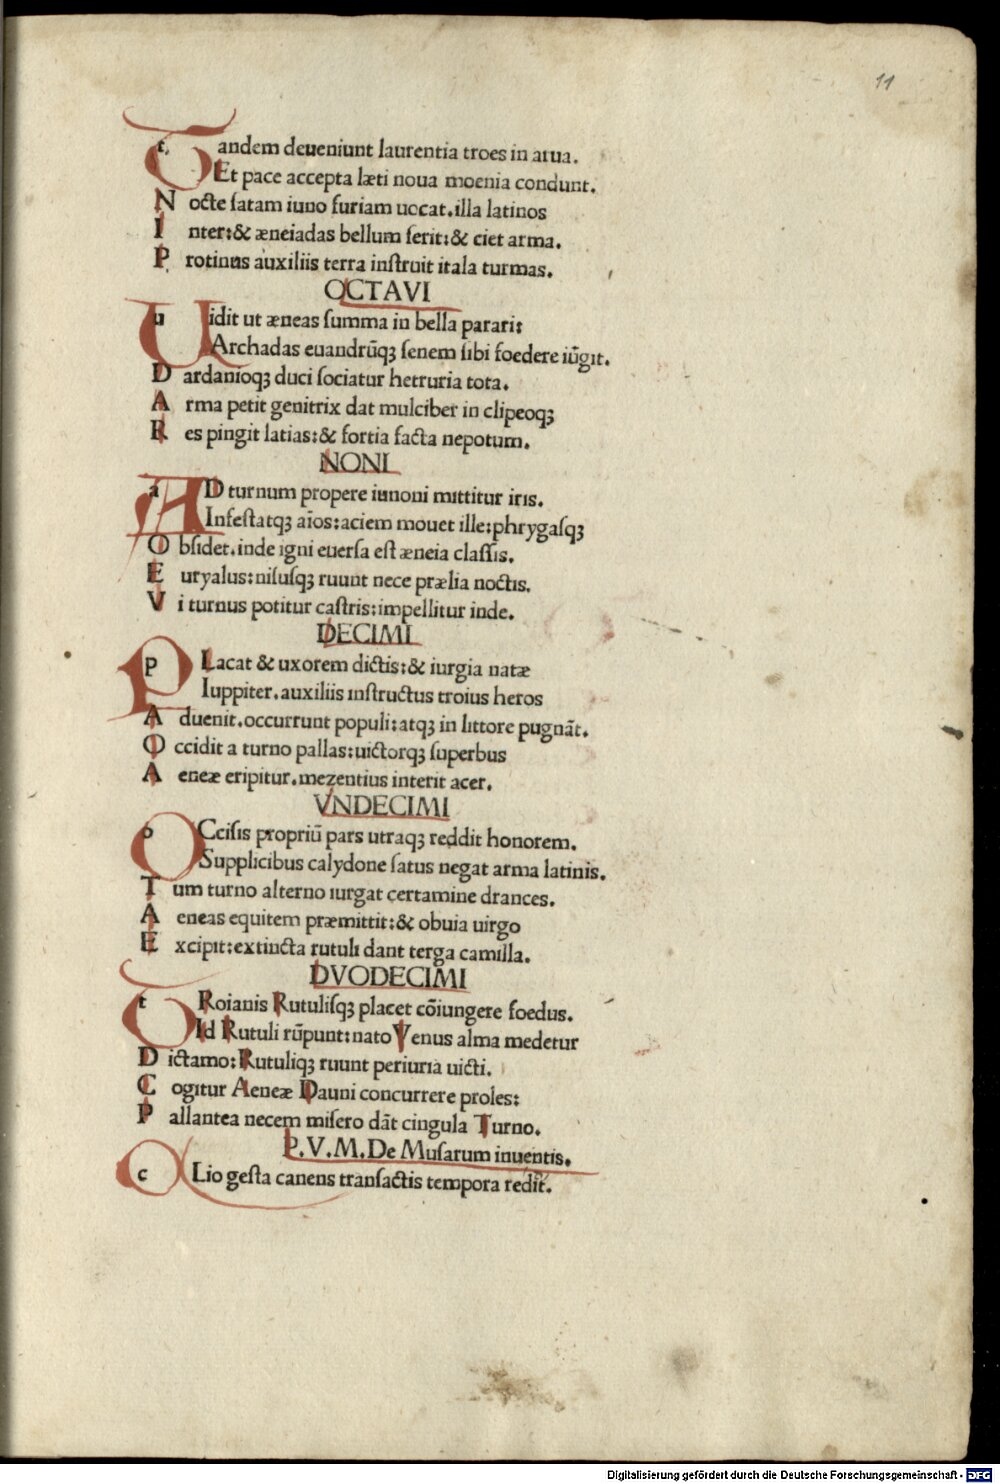 11
Tandem deueniunt laurentia troes in arua.
Et pace accepta læti noua moenia condunt.
Nocte satam iuno furiam uocat.illa latinos
Inter:& æneiadas bellum serit:& ciet arma.
Protinus auxiliis terra instruit itala turmas.
OCTAVI
Uidit ut æneas summa in bella parari:
Archadas euandrūqꝫ senem sibi foedere iūgit.
Dardanioqꝫ duci sociatur hetruria tota.
Arma petit genitrix dat mulciber in clipeoqꝫ
Res pingit latias:& fortia facta nepotum.
NONI
AD turnum propere iunoni mittitur iris.
Infestatqꝫ aīos:aciem mouet ille:phrygasqꝫ
Obsidet.inde igni euersa est æneia classis.
Euryalus:nisusqꝫ ruunt nece prælia noctis.
Vi turnus potitur castris:impellitur inde.
DECIMI
PLacat & uxorem dictis:& iurgia natæ
Iuppiter.auxiliis instructus troius heros
Aduenit.occurrunt populi:atqꝫ in littore pugnāt.
Occidit a turno pallas:uictorqꝫ superbus
Aeneæ eripitur.mezentius interit acer.
VNDECIMI
OCcisis propriū pars utraqꝫ reddit honorem.
Supplicibus calydone satus negat arma latinis.
Tum turno alterno iurgat certamine drances.
Aeneas equitem præmittit:& obuia uirgo
Excipit:extincta rutuli dant terga camilla.
DVODECIMI
TRoianis Rutulisqꝫ placet cōiungere foedus.
Id Rutuli rūpunt:nato Venus alma medetur
Dictamo:Rutuliqꝫ ruunt periuria uicti.
Cogitur Aeneæ Dauni concurrere proles:
Pallantea necem misero dāt cingula Turno.
P.V.M.De Musarum inuentis.
CLio gesta canens transactis tempora redit.
Digitalisierung gefördert durch die Deutsche Forschungsgemeinschaft - DFG